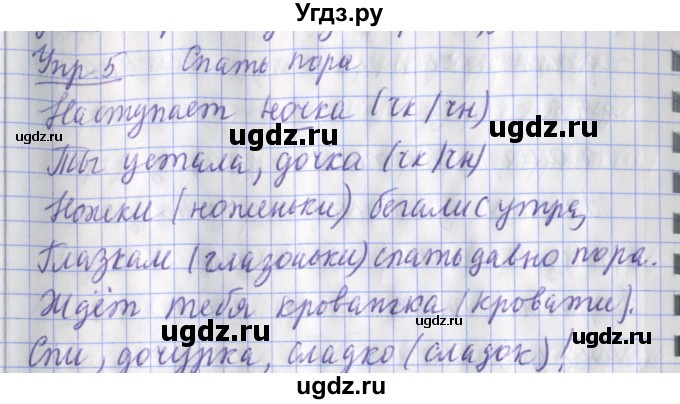 Угдз.ру
Упр 5 Спать пора
Наступает ночка (чк/чн)
ugdz.ru ugdz.ru
Ты устала, дочка (чк/чн)
ugdz.ru
Ножки (ноженьки) бегали с утра,
ugdz.ru ugdz.ru
Глазкам (глазоньки) спать давно пора.
ugdz.ru
Ждёт тебя кроватка (кровати).
ugdz.ru ugdz.ru
Спи, дочурка, сладко (сладок)!
ugdz.ru